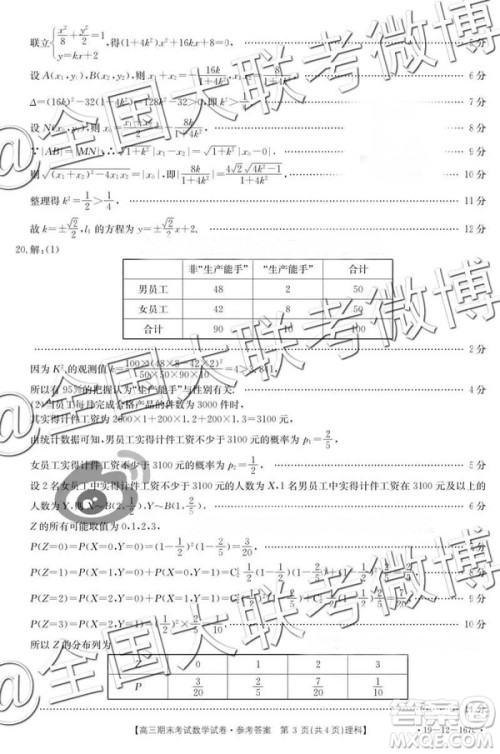 联立{x²/8+y²/2=1, y=kx+2 得(1+4k²)x²+16kx+8=0, 5分
设A(x₁,y₁),B(x₂,y₂),则x₁+x₂=-16k/(1+4k²) 6分
Δ=(16k)²-32(1+4k²)=128k²-32>0,即 7分
设N(x₀,y₀),则x₀= 8分
∵|AB|=|MN|,∴√(1+k²)|x₁-x₂|=√(1+k²)|x₀-0|, 9分
则√((x₁+x₂)²-4x₁x₂)=|x₀|,即|8k/(1+4k²)|=4√2√(4k²-1)/(1+4k²) 10分
整理得k²=1/2>1/4, 11分
故k=±√2/2,l₁的方程为y=±√2/2x+2. 12分
20.解:(1)
非“生产能手” “生产能手” 合计
男员工 48 2 50
女员工 42 8 50
合计 90 10 100
2分
因为K²的观测值k=100×(48×8-42×2)²/(50×50×90×10)=4>3.841,
所以有95%的把握认为“生产能手”与性别有关. 4分
(2)当员工每月完成合格产品的件数为3000件时,
实得计件工资为2600×1+200×1.2+200×1.3=3100元,
由统计数据可知,男员工实得计件工资不少于3100元的概率为p₁=2/5,
女员工实得计件工资不少于3100元的概率为p₂=1/2, 5分
设2名女员工中实得计件工资不少于3100元的人数为X,1名男员工中实得计件工资在3100元及以上的
人数为Y,则X~B(2,1/2),Y~B(1,2/5), 6分
Z的所有可能取值为0,1,2,3,
P(Z=0)=P(X=0,Y=0)=(1-1/2)²(1-2/5)=3/20,
P(Z=1)=P(X=1,Y=0)+P(X=0,Y=1)=
P(Z=2)=P(X=2,Y=0)+P(X=1,Y=1)=
P(Z=3)=P(X=2,Y=1)=(1/2)²×2/5=1/10 10分
所以Z的分布列为
Z 0 1 2 3
P 3/20 2/5 7/20 1/10
11分
【高三期末考试数学试卷·参考答案 第3页(共4页)理科】
·19-12-167C·
@全国大联考微博
@全国大联考微博
@全国大联考微博